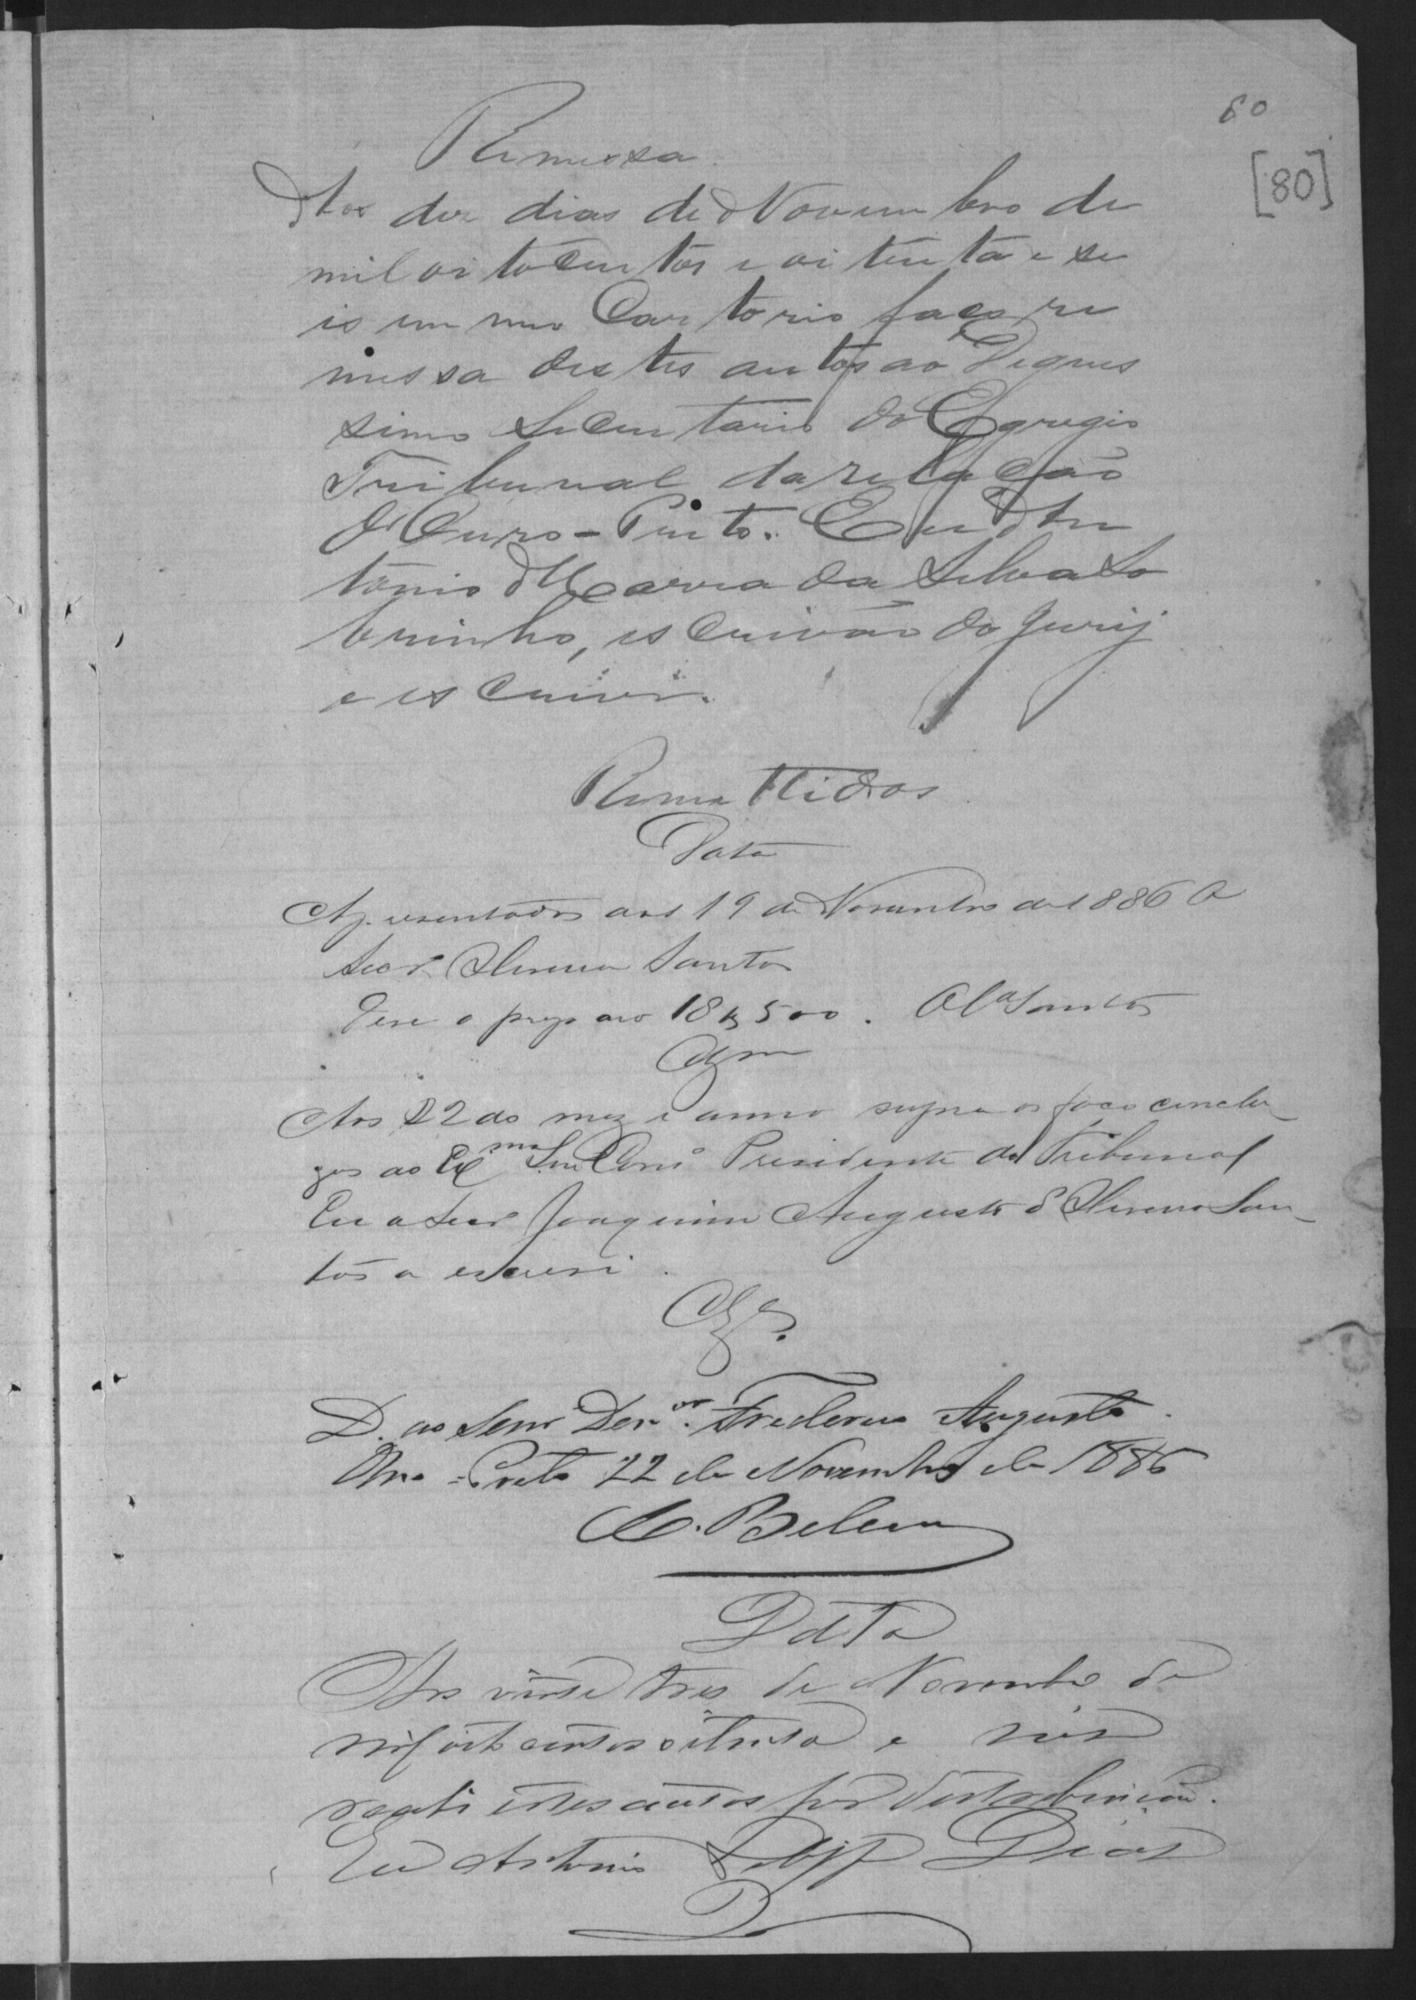 60
[80]
Remessa
Aos dez dias de Novembro de
mil oitocentos e oitenta e se
is em meo Cartorio faço re
messa destes autos ao Dignis
simo Secretario do Egregio
Tribunal da relação
d'Ouro-Preto. Eu An
tonio Maria da Silva So
brinho, escrivão do jury
e escrevi.
Remettidos
Data
Apresentados aos 19 de Novembro de 1886 O
Secr Santos
Tem o preparo 18$500. Santos
Clsm
Aos 22 do mez e anno supra os faço conclu
zos ao Exmo Snr Conso Presidente do Tribunal
Eu o Secr Joaquim Augusto d' San-
tos o escrevi.
D. ao Senr Dezor. Frederico Augusto.
Ouro-Preto 22 de Novembro de 1886
Belem
Data
Aos vinte tres de Novembro de
mil oitocentos oitenta e seis
recebi estes autos por distribuição.
Eu Antonio Dias